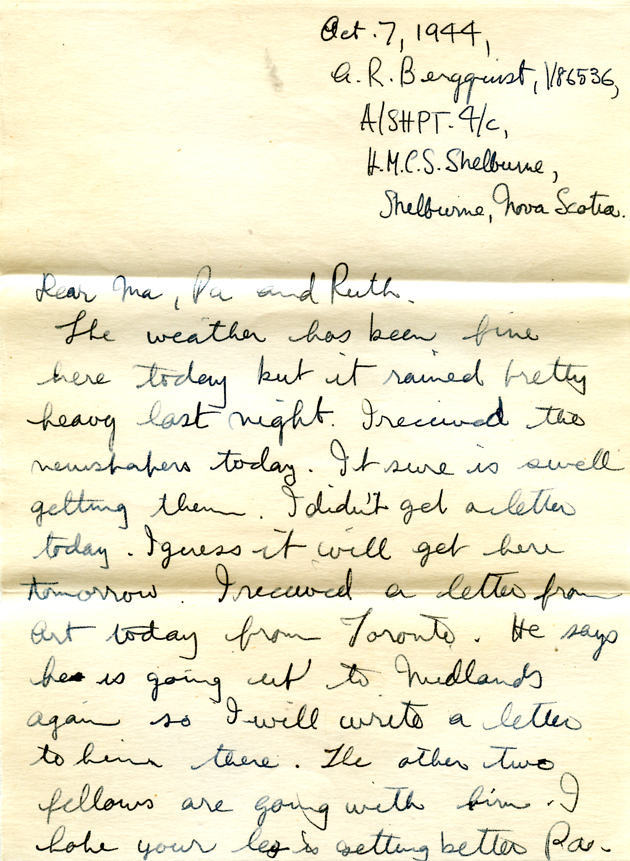 Oct. 7, 1944,
A. R. Bergquist, V86536,
A/SHPT. 4/c,
H.M.C.S. Shelburne,
Shelburne, Nova Scotia.
Dear Ma, Pa and Ruth.
The weather has been fine
here today but it rained pretty
heavy last night. I received the
newspapers today. It sure is swell
getting them. I didn't get a letter
today. I guess it will get here
tomorrow. I received a letter from
Art today from Toronto. He says
he is going up to Midlands
again so I will write a letter
to him there. The other two
fellows are going with him. I
hope your leg is getting better Pa.